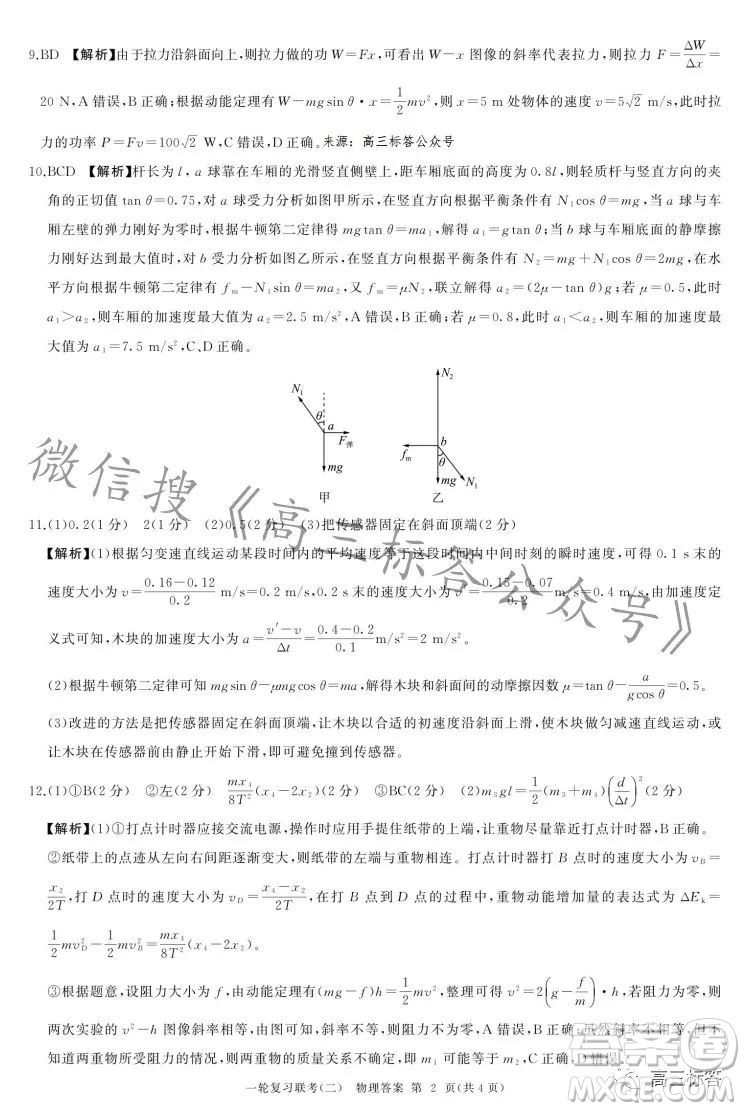 9.BD 【解析】由于拉力沿斜面向上,则拉力做的功 W=Fx,可看出 W-x 图像的斜率代表拉力,则拉力 F=ΔW/Δx=
20 N,A 错误,B 正确;根据动能定理有 W-mgsin θ·x=1/2mv²,则 x=5 m 处物体的速度 v=5√2 m/s,此时拉
力的功率 P=Fv=100√2 W,C 错误,D 正确。来源:高三标答公众号
10.BCD 【解析】杆长为 l,a 球靠在车厢的光滑竖直侧壁上,距车厢底面的高度为 0.8l,则轻质杆与竖直方向的夹
角的正切值 tan θ=0.75,对 a 球受力分析如图甲所示,在竖直方向根据平衡条件有 N₁cos θ=mg,当 a 球与车
厢左壁的弹力刚好为零时,根据牛顿第二定律得 mgtan θ=ma₁,解得 a₁=gtan θ;当 b 球与车厢底面的静摩擦
力刚好达到最大值时,对 b 受力分析如图乙所示,在竖直方向根据平衡条件有 N₂=mg+N₁cos θ=2mg,在水
平方向根据牛顿第二定律有 fₘ-N₁sin θ=ma₂,又 fₘ=μN₂,联立解得 a₂=(2μ-tan θ)g;若 μ=0.5,此时
a₁>a₂,则车厢的加速度最大值为 a₂=2.5 m/s²,A 错误,B 正确;若 μ=0.8,此时 a₁<a₂,则车厢的加速度最
大值为 a₁=7.5 m/s²,C、D 正确。
N₁ θ a F弹 mg
甲
N₂ fₘ b θ mg N₁
乙
11.(1)0.2(1分) 2(1分) (2)0.5(2分) (3)把传感器固定在斜面顶端(2分)
【解析】(1)根据匀变速直线运动某段时间内的平均速度等于这段时间内中间时刻的瞬时速度,可得 0.1 s 末的
速度大小为 v=(0.16-0.12)/0.2 m/s=0.2 m/s,0.2 s 末的速度大小为 v′=(0.15-0.07)/0.2 m/s=0.4 m/s,由加速度定
义式可知,木块的加速度大小为 a=(v′-v)/Δt=(0.4-0.2)/0.1 m/s²=2 m/s²。
(2)根据牛顿第二定律可知 mgsin θ-μmgcos θ=ma,解得木块和斜面间的动摩擦因数 μ=tan θ-a/(gcos θ)=0.5。
(3)改进的方法是把传感器固定在斜面顶端,让木块以合适的初速度沿斜面上滑,使木块做匀减速直线运动,或
让木块在传感器前由静止开始下滑,即可避免撞到传感器。
12.(1)①B(2分) ②左(2分) mx₄/8T²(x₄-2x₂)(2分) ③BC(2分) (2)m₃gl=1/2(m₃+m₄)(d/Δt)²(2分)
【解析】(1)①打点计时器应接交流电源,操作时应用手提住纸带的上端,让重物尽量靠近打点计时器,B 正确。
②纸带上的点从左向右间距逐渐变大,则纸带的左端与重物连接。打点计时器打 B 点时的速度大小为 v_B=
x₂/2T,打 D 点时的速度大小为 v_D=(x₄-x₂)/2T,打 B 点到打 D 点的过程中,重物动能增量的表达式为 ΔEₖ=
1/2mv_D²-1/2mv_B²=mx₄/8T²(x₄-2x₂)。
③根据题意,设阻力大小为 f,由动能定理有(mg-f)h=1/2mv²,整理可得 v²=2(g-f/m)·h,若阻力为零,则
两次实验的 v²-h 图像斜率相等,由图可知,斜率不等,则阻力不为零,A 错误,B 正确;虽然斜率不相等,但不
知道两次重物所受阻力的情况,则两重物的质量关系不确定,即 m₁ 可能等于 m₂,C 正确,D 错误。
一轮复习联考(二) 物理答案 第 2 页(共 4 页)
微信搜《高三标答公众号》
答案圈
高三标答